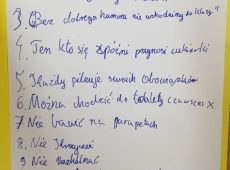 3. Bez dobrego humoru nie wchodzimy do klasy"
4. Ten kto się spóźni przynosi cukierki
5. Każdy pilnuje swoich obowiązków
6. Można chodzić do toalety czasowo x
7 Nie bawić na parapetach
8. Nie
9 Nie